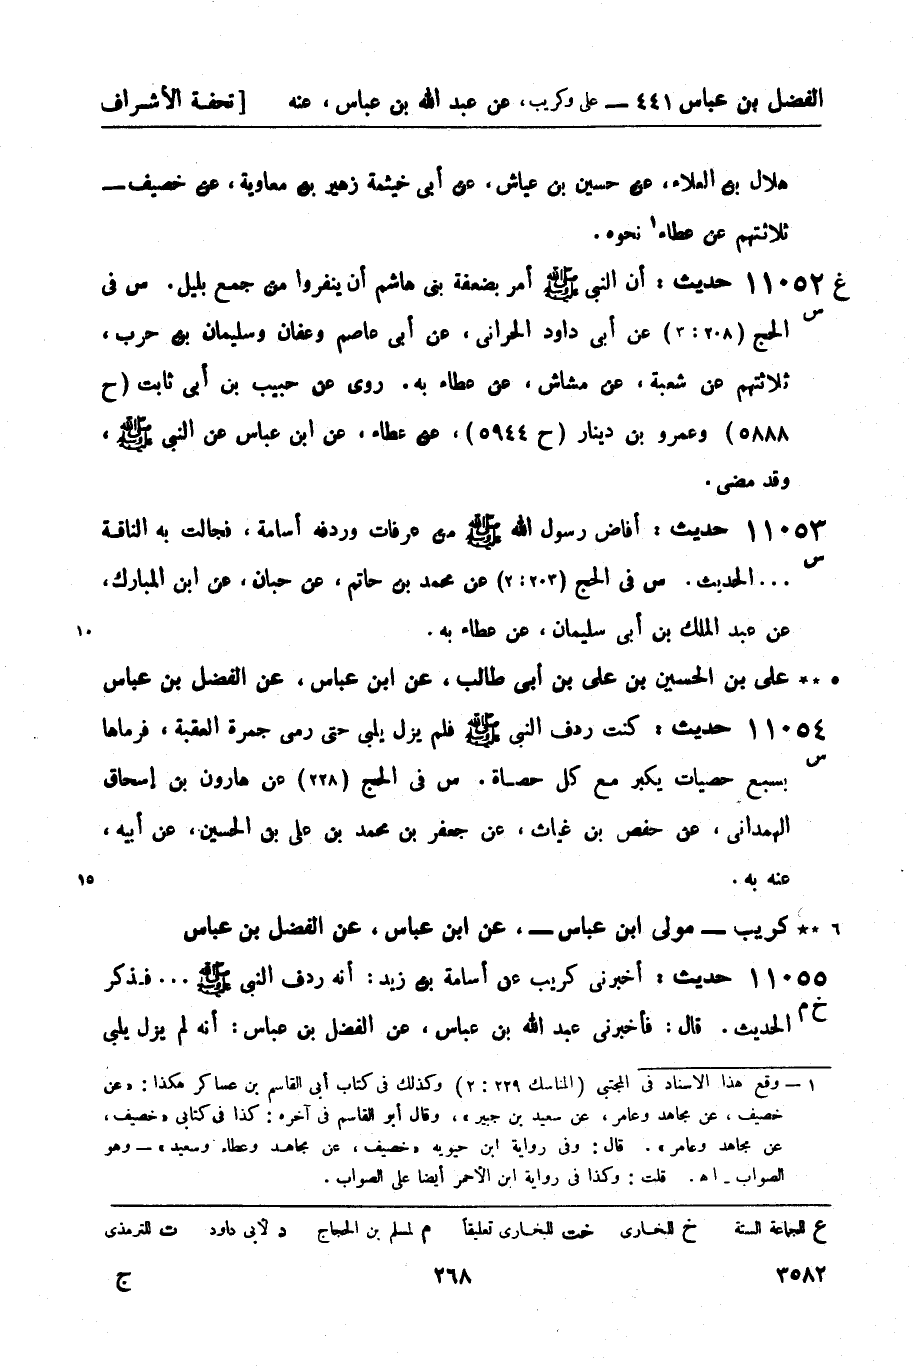 الفضل بن عباس ٤٤١ — على وكريب، عن عبد الله بن عباس، عنه [ تحفة الأشراف
هلال بن العلاء، عن حسين بن عياش، عن أبى خيثمة زهير بن معاوية، عن خصيف —
ثلاثتهم عن عطاء١ نحوه.
غ ١١٠٥٢ حديث : أن النبى ﷺ أمر بضعفة بنى هاشم أن ينفروا من جمع بليل. س فى
س الحج (٢٠٨ : ٣) عن أبى داود الحرانى، عن أبى عاصم وعفان وسليمان بن حرب،
ثلاثتهم عن شعبة، عن مشاش، عن عطاء به. روى عن حبيب بن أبى ثابت (ح
٥٨٨٨) وعمرو بن دينار (ح ٥٩٤٤)، عن عطاء، عن ابن عباس عن النبى ﷺ،
وقد مضى.
١١٠٥٣ حديث : أفاض رسول الله ﷺ من عرفات وردفه أسامة، فجالت به الناقة
س ... الحديث. س فى الحج (٢٠٣ : ٢) عن محمد بن حاتم، عن حبان، عن ابن المبارك،
عن عبد الملك بن أبى سليمان، عن عطاء به. ١٠
٥ ** على بن الحسين بن على بن أبى طالب، عن ابن عباس، عن الفضل بن عباس
١١٠٥٤ حديث : كنت ردف النبى ﷺ فلم يزل يلبي حتى رمى جمرة العقبة، فرماها
س بسبع حصيات يكبر مع كل حصاة. س فى الحج (٢٢٨) عن هارون بن إسحاق
الهمدانى، عن حفص بن غياث، عن جعفر بن محمد بن على بن الحسين، عن أبيه،
عنه به. ١٥
٦ ** كريب — مولى ابن عباس —، عن ابن عباس، عن الفضل بن عباس
١١٠٥٥ حديث : أخبرنى كريب عن أسامة بن زيد: أنه ردف النبى ﷺ ... فذكر
خ م الحديث. قال: فأخبرنى عبد الله بن عباس، عن الفضل بن عباس: أنه لم يزل يلبي
١ — وقع هذا الاسناد فى المجتبي (المناسك ٢٢٩ : ٢) وكذلك فى كتاب أبى القاسم بن عساكر هكذا: «عن
خصيف، عن مجاهد وعامر، عن سعيد بن جبير»، وقال أبو القاسم فى آخره: كذا فى كتابى «خصيف،
عن مجاهد وعامر». قال: وفى رواية ابن حيويه «خصيف، عن مجاهد وعطاء وسعيد» — وهو
الصواب - اه. قلت: وكذا فى رواية ابن الأحمر أيضا على الصواب.
ع للجماعة الستة خ للبخارى خت للبخارى تعليقاً م لمسلم بن الحجاج د لأبى داود ت للترمذى
٣٥٨٢ ٢٦٨ ج